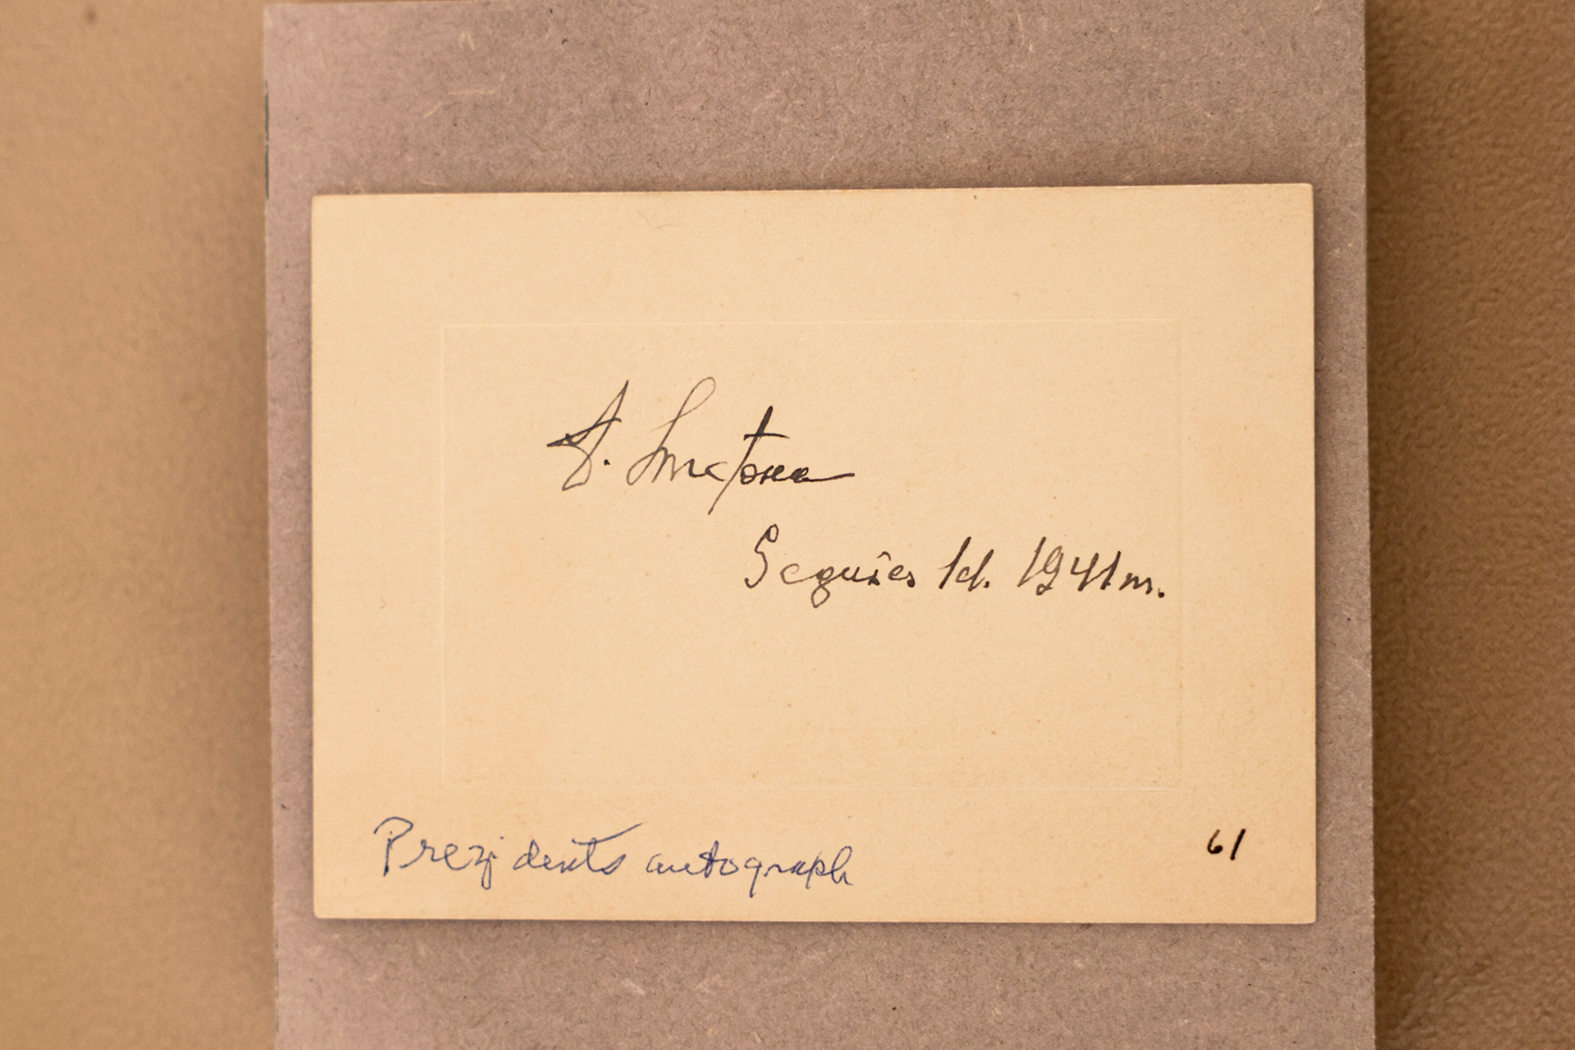 A. Smetona
Gegužės 1 d. 1941 m.
Prezidents autograph
61